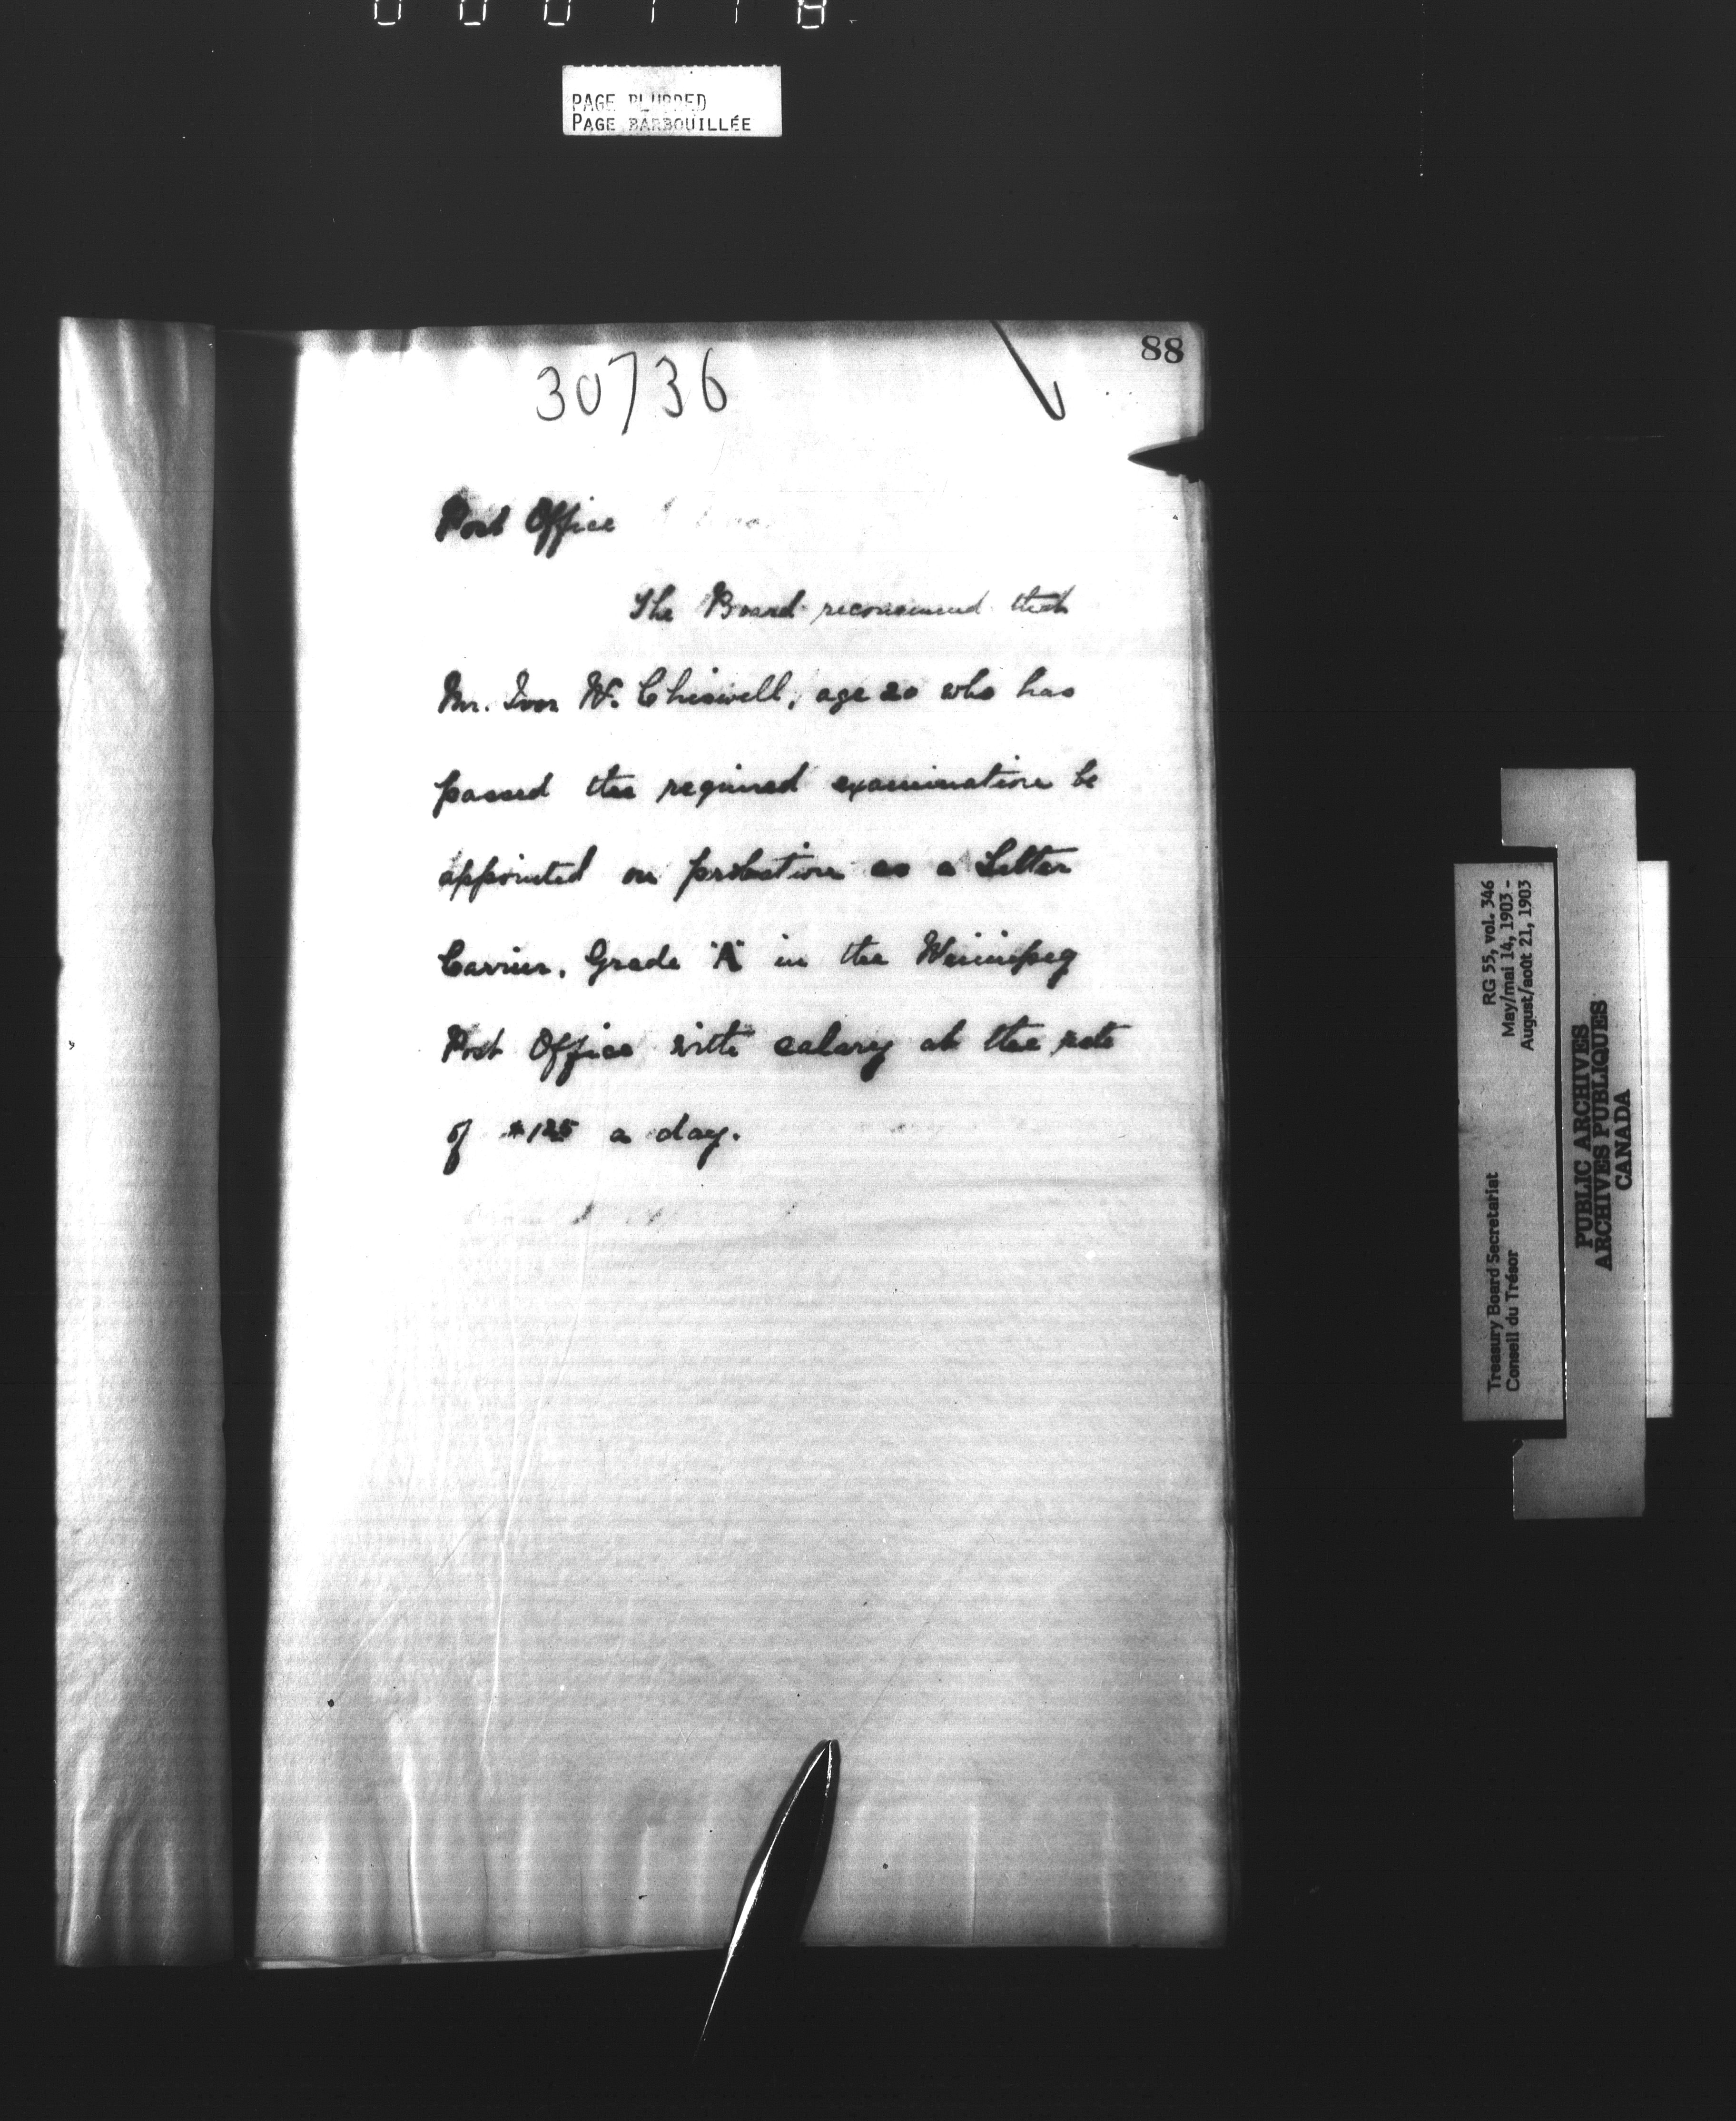 PAGE BLURRED
PAGE BARBOUILLÉE
88
30736
Post Office
The Board recommend that
Mr. Ivor W. Chiswell, age 20 who has
passed the required examination be
appointed on probation as a Letter
Carrier, Grade "A" in the Winnipeg
Post Office with salary at the rate
of $1.25 a day.
RG 55, vol. 346
May/mai 14, 1903 -
August/août 21, 1903
Treasury Board Secretariat
Conseil du Trésor
PUBLIC ARCHIVES
ARCHIVES PUBLIQUES
CANADA